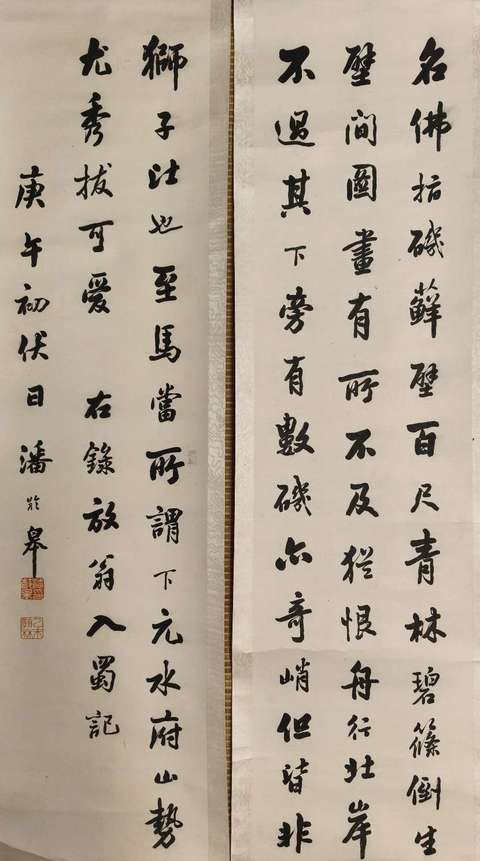 名佛指磯蘚壁百尺青林碧篠倒生
壁間圖畫有所不及猶恨舟行北岸
不過其下旁有數磯亦奇峭但皆非
獅子比也至馬當所謂下元水府山勢
尤秀拔可愛 右錄放翁入蜀記
庚午初伏日潘齡皋
乙未翰林